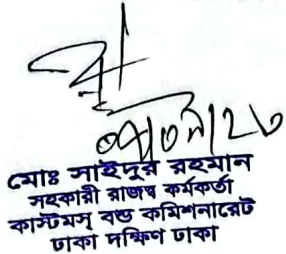 মোঃ সাইদুর রহমান
সহকারী রাজস্ব কর্মকর্তা
কাস্টমস্ বন্ড কমিশনারেট
ঢাকা দক্ষিণ ঢাকা